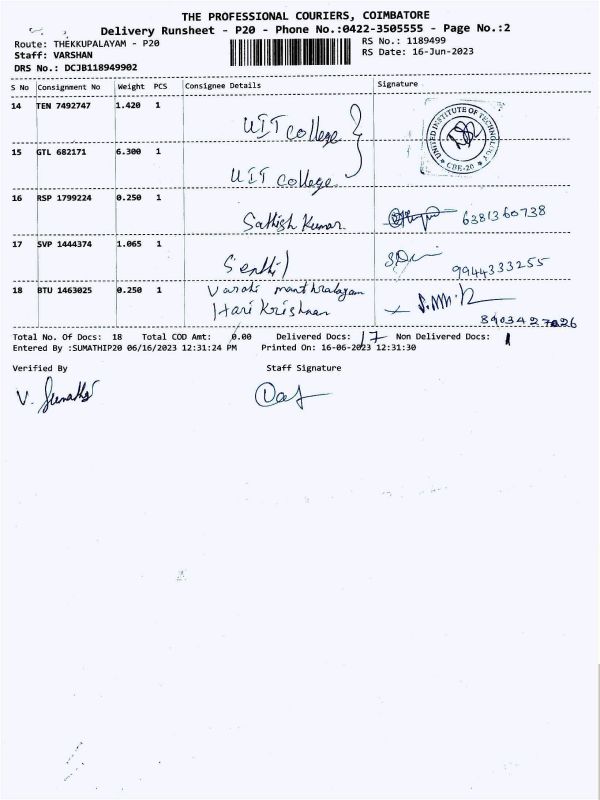 THE PROFESSIONAL COURIERS, COIMBATORE
Delivery Runsheet - P20 - Phone No.:0422-3505555 - Page No.:2
Route: THEKKUPALAYAM - P20 RS No.: 1189499
Staff: VARSHAN RS Date: 16-Jun-2023
DRS No.: DCJB118949902
S No Consignment No Weight PCS Consignee Details Signature
14 TEN 7492747 1.420 1 UIT college
UNITED INSTITUTE OF TECHNOLOGY CBE-20
15 GTL 682171 6.300 1 UIT college
16 RSP 1799224 0.250 1 Sathish Kumar 6381360738
17 SVP 1444374 1.065 1 Senthil 9944333255
18 BTU 1463025 0.250 1 Varahi manthralayam
Hari Krishnan
8903427026
Total No. Of Docs: 18 Total COD Amt: 0.00 Delivered Docs: 17 Non Delivered Docs: 1
Entered By :SUMATHIP20 06/16/2023 12:31:24 PM Printed On: 16-06-2023 12:31:30
Verified By Staff Signature
V. Sumathi